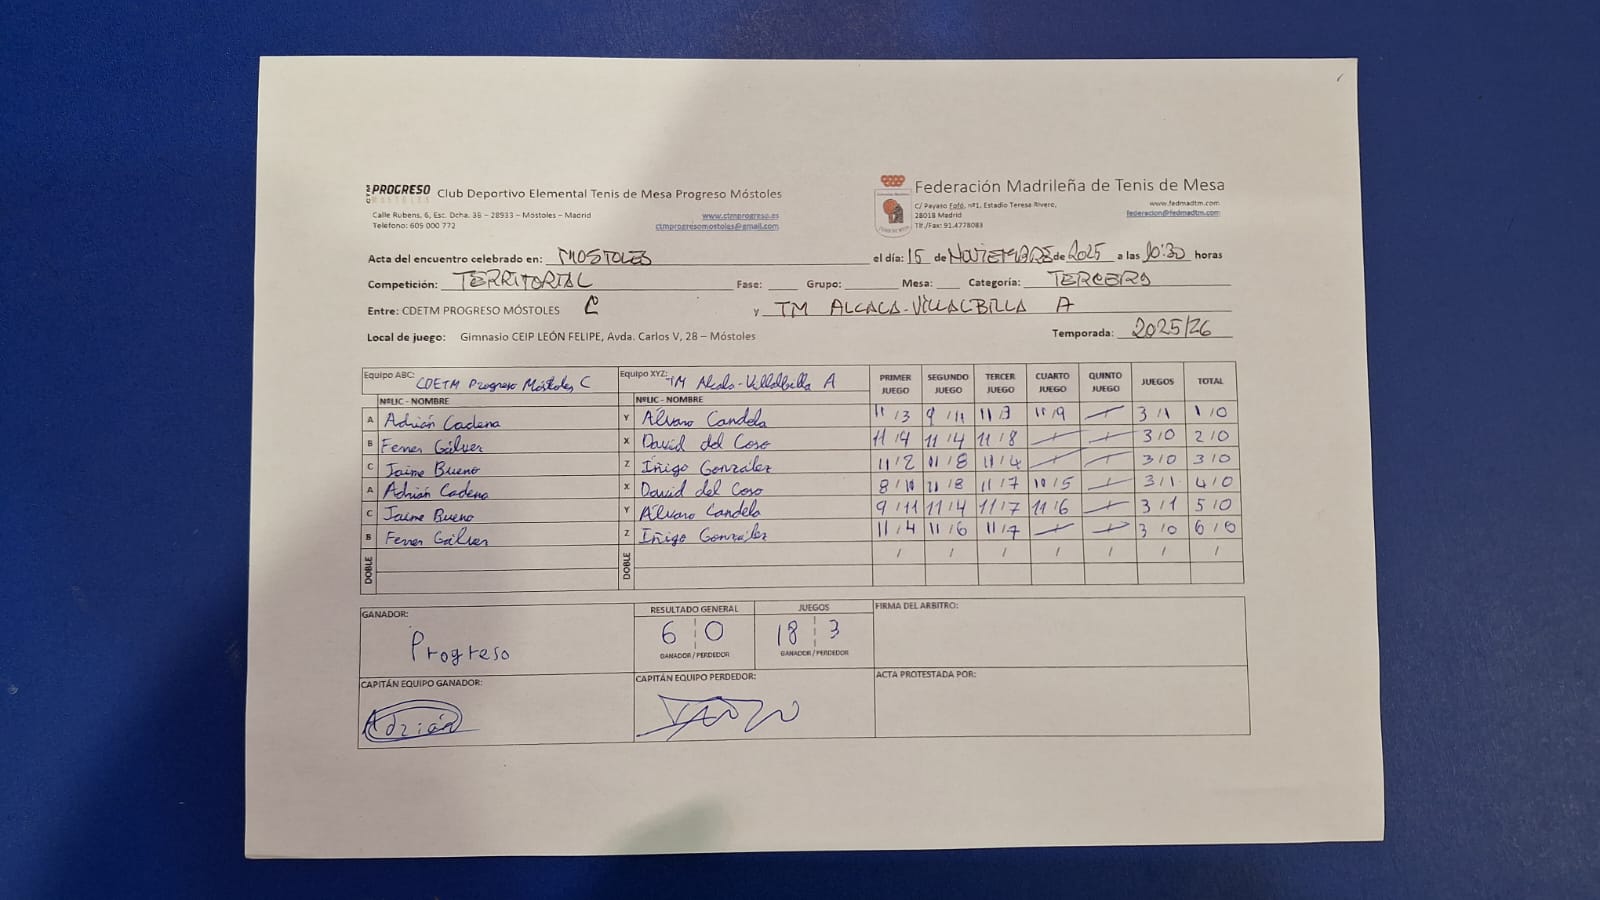 CTM PROGRESO MÓSTOLES Club Deportivo Elemental Tenis de Mesa Progreso Móstoles
Calle Rubens, 6, Esc. Dcha. 3B – 28933 – Móstoles – Madrid www.ctmprogreso.es
Teléfono: 605 000 772 ctmprogresomostoles@gmail.com
Federación Madrileña de Tenis de Mesa
C/ Payaso Fofó, nº1, Estadio Teresa Rivero, www.fedmadtm.com
28018 Madrid federacion@fedmadtm.com
Tlf./Fax: 91.4778083
Acta del encuentro celebrado en: MOSTOLES el día: 15 de NOVIEMBRE de 2025 a las 10:30 horas
Competición: TERRITORIAL Fase: Grupo: Mesa: Categoría: TERCERA
Entre: CDETM PROGRESO MÓSTOLES C y TM ALCALA-VILLALBILLA A
Local de juego: Gimnasio CEIP LEÓN FELIPE, Avda. Carlos V, 28 – Móstoles Temporada: 2025/26
Equipo ABC: CDETM Progreso Móstoles C Equipo XYZ: TM Alcala-Villalbilla A PRIMER JUEGO SEGUNDO JUEGO TERCER JUEGO CUARTO JUEGO QUINTO JUEGO JUEGOS TOTAL
NºLIC - NOMBRE NºLIC - NOMBRE
A Adrián Cadena Y Álvaro Candela 11/3 9/11 11/3 11/9 3/1 1/0
B Ferrer Gálvez X David del Coso 11/4 11/4 11/8 3/0 2/0
C Jaime Bueno Z Íñigo González 11/2 11/8 11/4 3/0 3/0
A Adrián Cadena X David del Coso 8/11 11/8 11/7 3/1 4/0
C Jaime Bueno Y Álvaro Candela 9/11 11/4 11/7 11/6 3/1 5/0
B Ferrer Gálvez Z Íñigo González 11/4 11/6 11/7 3/0 6/0
DOBLE DOBLE / / / / / / /
GANADOR: RESULTADO GENERAL JUEGOS FIRMA DEL ARBITRO:
Progreso 6 0 18 3
GANADOR / PERDEDOR GANADOR / PERDEDOR
CAPITÁN EQUIPO GANADOR: CAPITÁN EQUIPO PERDEDOR: ACTA PROTESTADA POR:
Adrián